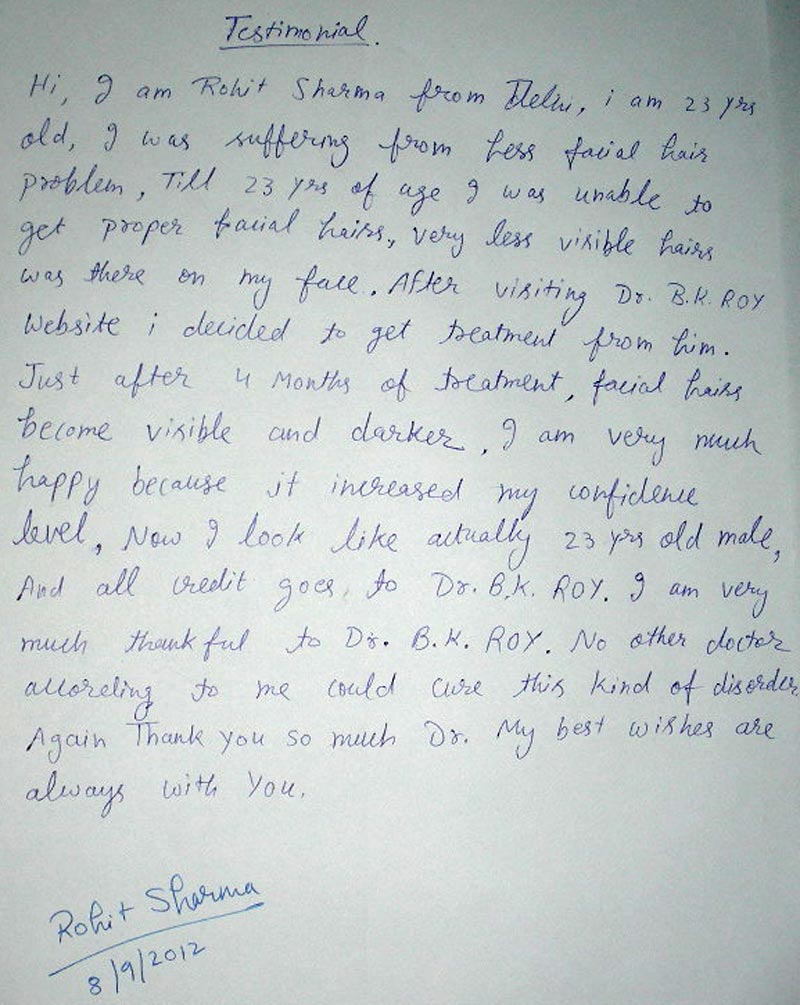 Testimonial.
Hi, I am Rohit Sharma from Delhi, i am 23 yrs
old, I was suffering from Less facial hair
problem, Till 23 yrs of age I was unable to
get proper facial hairs, very less visible hairs
was there on my face. After visiting Dr. B.K. ROY
Website i decided to get treatment from him.
Just after 4 Months of treatment, facial hairs
become visible and darker, I am very much
happy because it increased my confidence
level, Now I look like actually 23 yrs old male,
And all credit goes to Dr. B.K. ROY. I am very
much thankful to Dr. B.K. ROY. No other doctor
according to me could cure this kind of disorder.
Again Thank you so much Dr. My best wishes are
always with You.
Rohit Sharma
8/9/2012